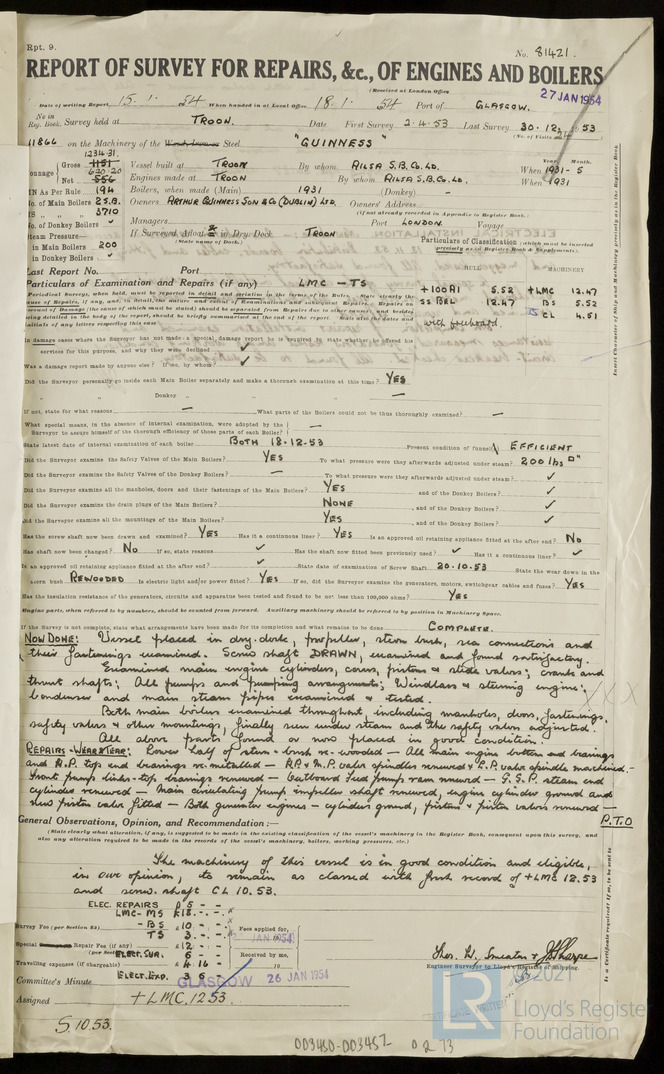 Rpt. 9.
No. 81421.
REPORT OF SURVEY FOR REPAIRS, &c., OF ENGINES AND BOILERS
(Received at London Office
27 JAN 1954
Date of writing Report, 15.1.54 When handed in at Local Office 18.1.54 Port of GLASGOW.
No. in Reg. Book. Survey held at TROON. Date First Survey 2.4.53 Last Survey 30.12.53
(No. of Visits
11866 on the Machinery of the Steel "GUINNESS"
1234.31
Gross 1151
620.20
Net 556
Vessel built at TROON By whom AILSA S.B. Co. LD. When 1931-5
Year. Month.
Engines made at TROON By whom AILSA S.B. Co. LD. When 1931
As Per Rule 194 Boilers, when made (Main) 1931 (Donkey) -
No. of Main Boilers 2 S.B. Owners ARTHUR GUINNESS SON & CO (DUBLIN) LTD. Owners' Address
3710 (if not already recorded in Appendix to Register Book.)
No. of Donkey Boilers ✓ Managers Port LONDON. Voyage
Steam Pressure— If Surveyed Afloat or in Dry Dock TROON
in Main Boilers 200 (State name of Dock.)
in Donkey Boilers ✓
Particulars of Classification (which must be inserted precisely as in Register Book & Supplements).
Last Report No. Port
HULL MACHINERY
Particulars of Examination and Repairs (if any) LMC - TS
+100A1 5.52 +LMC 12.47
SS BEL 12.47 BS 5.52
with freeboard. CL 4.51
In damage cases where the Surveyor has not made a special damage report he is required to state whether he offered his
services for this purpose, and why they were declined ✓
Was a damage report made by anyone else? If so, by whom? ✓
Did the Surveyor personally go inside each Main Boiler separately and make a thorough examination at this time? YES
" " Donkey " " " —
If not, state for what reasons — What parts of the Boilers could not be thus thoroughly examined? —
What special means, in the absence of internal examination, were adopted by the
Surveyor to assure himself of the thorough efficiency of those parts of each Boiler? —
State latest date of internal examination of each boiler BOTH 18-12-53 Present condition of funnel EFFICIENT
Did the Surveyor examine the Safety Valves of the Main Boilers? YES To what pressure were they afterwards adjusted under steam? 200 lbs □"
Did the Surveyor examine the Safety Valves of the Donkey Boilers? — To what pressure were they afterwards adjusted under steam? ✓
Did the Surveyor examine all the manholes, doors and their fastenings of the Main Boilers? YES and of the Donkey Boilers? ✓
Did the Surveyor examine the drain plugs of the Main Boilers? NONE and of the Donkey Boilers? ✓
Did the Surveyor examine all the mountings of the Main Boilers? YES and of the Donkey Boilers? ✓
Has the screw shaft now been drawn and examined? YES Has it a continuous liner? YES Is an approved oil retaining appliance fitted at the after end? NO
Has shaft now been changed? NO If so, state reasons ✓ Has the shaft now fitted been previously used? ✓ Has it a continuous liner? ✓
Is an approved oil retaining appliance fitted at the after end? ✓ State date of examination of Screw Shaft 20.10.53 State the wear down in the
stern bush REWOODED Is electric light and/or power fitted? YES If so, did the Surveyor examine the generators, motors, switchgear cables and fuses? YES
Has the insulation resistance of the generators, circuits and apparatus been tested and found to be not less than 100,000 ohms? YES
Engine parts, when referred to by numbers, should be counted from forward. Auxiliary machinery should be referred to by position in Machinery Space.
If the Survey is not complete, state what arrangements have been made for its completion and what remains to be done COMPLETE.
NOW DONE: Vessel placed in dry-dock, propeller, stern bush, sea connections and
their fastenings examined. Screw shaft DRAWN, examined and found satisfactory.
Examined main engine cylinders, covers, pistons & slide valves; cranks and
thrust shafts; All pumps and pumping arrangements; Windlass & steering engine;
Condenser and main steam pipes examined & tested.
Both main boilers examined throughout including manholes, doors, fastenings,
safety valves & other mountings, finally seen under steam and the safety valves adjusted.
All above parts found or now placed in good condition.
REPAIRS - WEAR & TEAR: Lower half of stern-bush re-wooded — All main engine bottom end bearings
and H.P. top end bearings re-metalled — H.P. & M.P. valve spindles renewed & L.P. valve spindle machined.—
Front pump links-top bearings renewed — Outboard feed pump ram renewed — G.S.P. steam end
cylinder renewed — Main circulating pump impeller shaft renewed, engine cylinder ground and
new piston valve fitted — Both generator engines - cylinders ground, pistons & piston valves renewed —
P.T.O
General Observations, Opinion, and Recommendation:—
(State clearly what alteration, if any, is suggested to be made in the existing classification of the vessel's machinery in the Register Book, consequent upon this survey, and
also any alteration required to be made in the records of the vessel's machinery, boilers, working pressures, etc.)
The machinery of this vessel is in good condition and eligible,
in our opinion, to remain as classed with fresh record of +LMC 12.53
and screw shaft CL 10.53.
ELEC. REPAIRS £5 - -
LMC-MS £18 - -
Survey Fee (per Section 23) - BS £10 - -
TS 3 - -
Fees applied for,
Special Repair Fee (if any) £12 - -
ELECT. SUR. 6 - -
Received by me,
Travelling expenses (if chargeable) £4 16 -
ELECT. EXP. 3 6 -
Thos. W. Smeaton & J. Sharpe
Engineer Surveyor to Lloyd's Register of Shipping.
Committee's Minute GLASGOW 26 JAN 1954
Assigned +LMC. 12.53
S. 10.53.
CERTIFICATE WRITTEN
LR
2021
Lloyd's Register
Foundation
003450-003457 0273